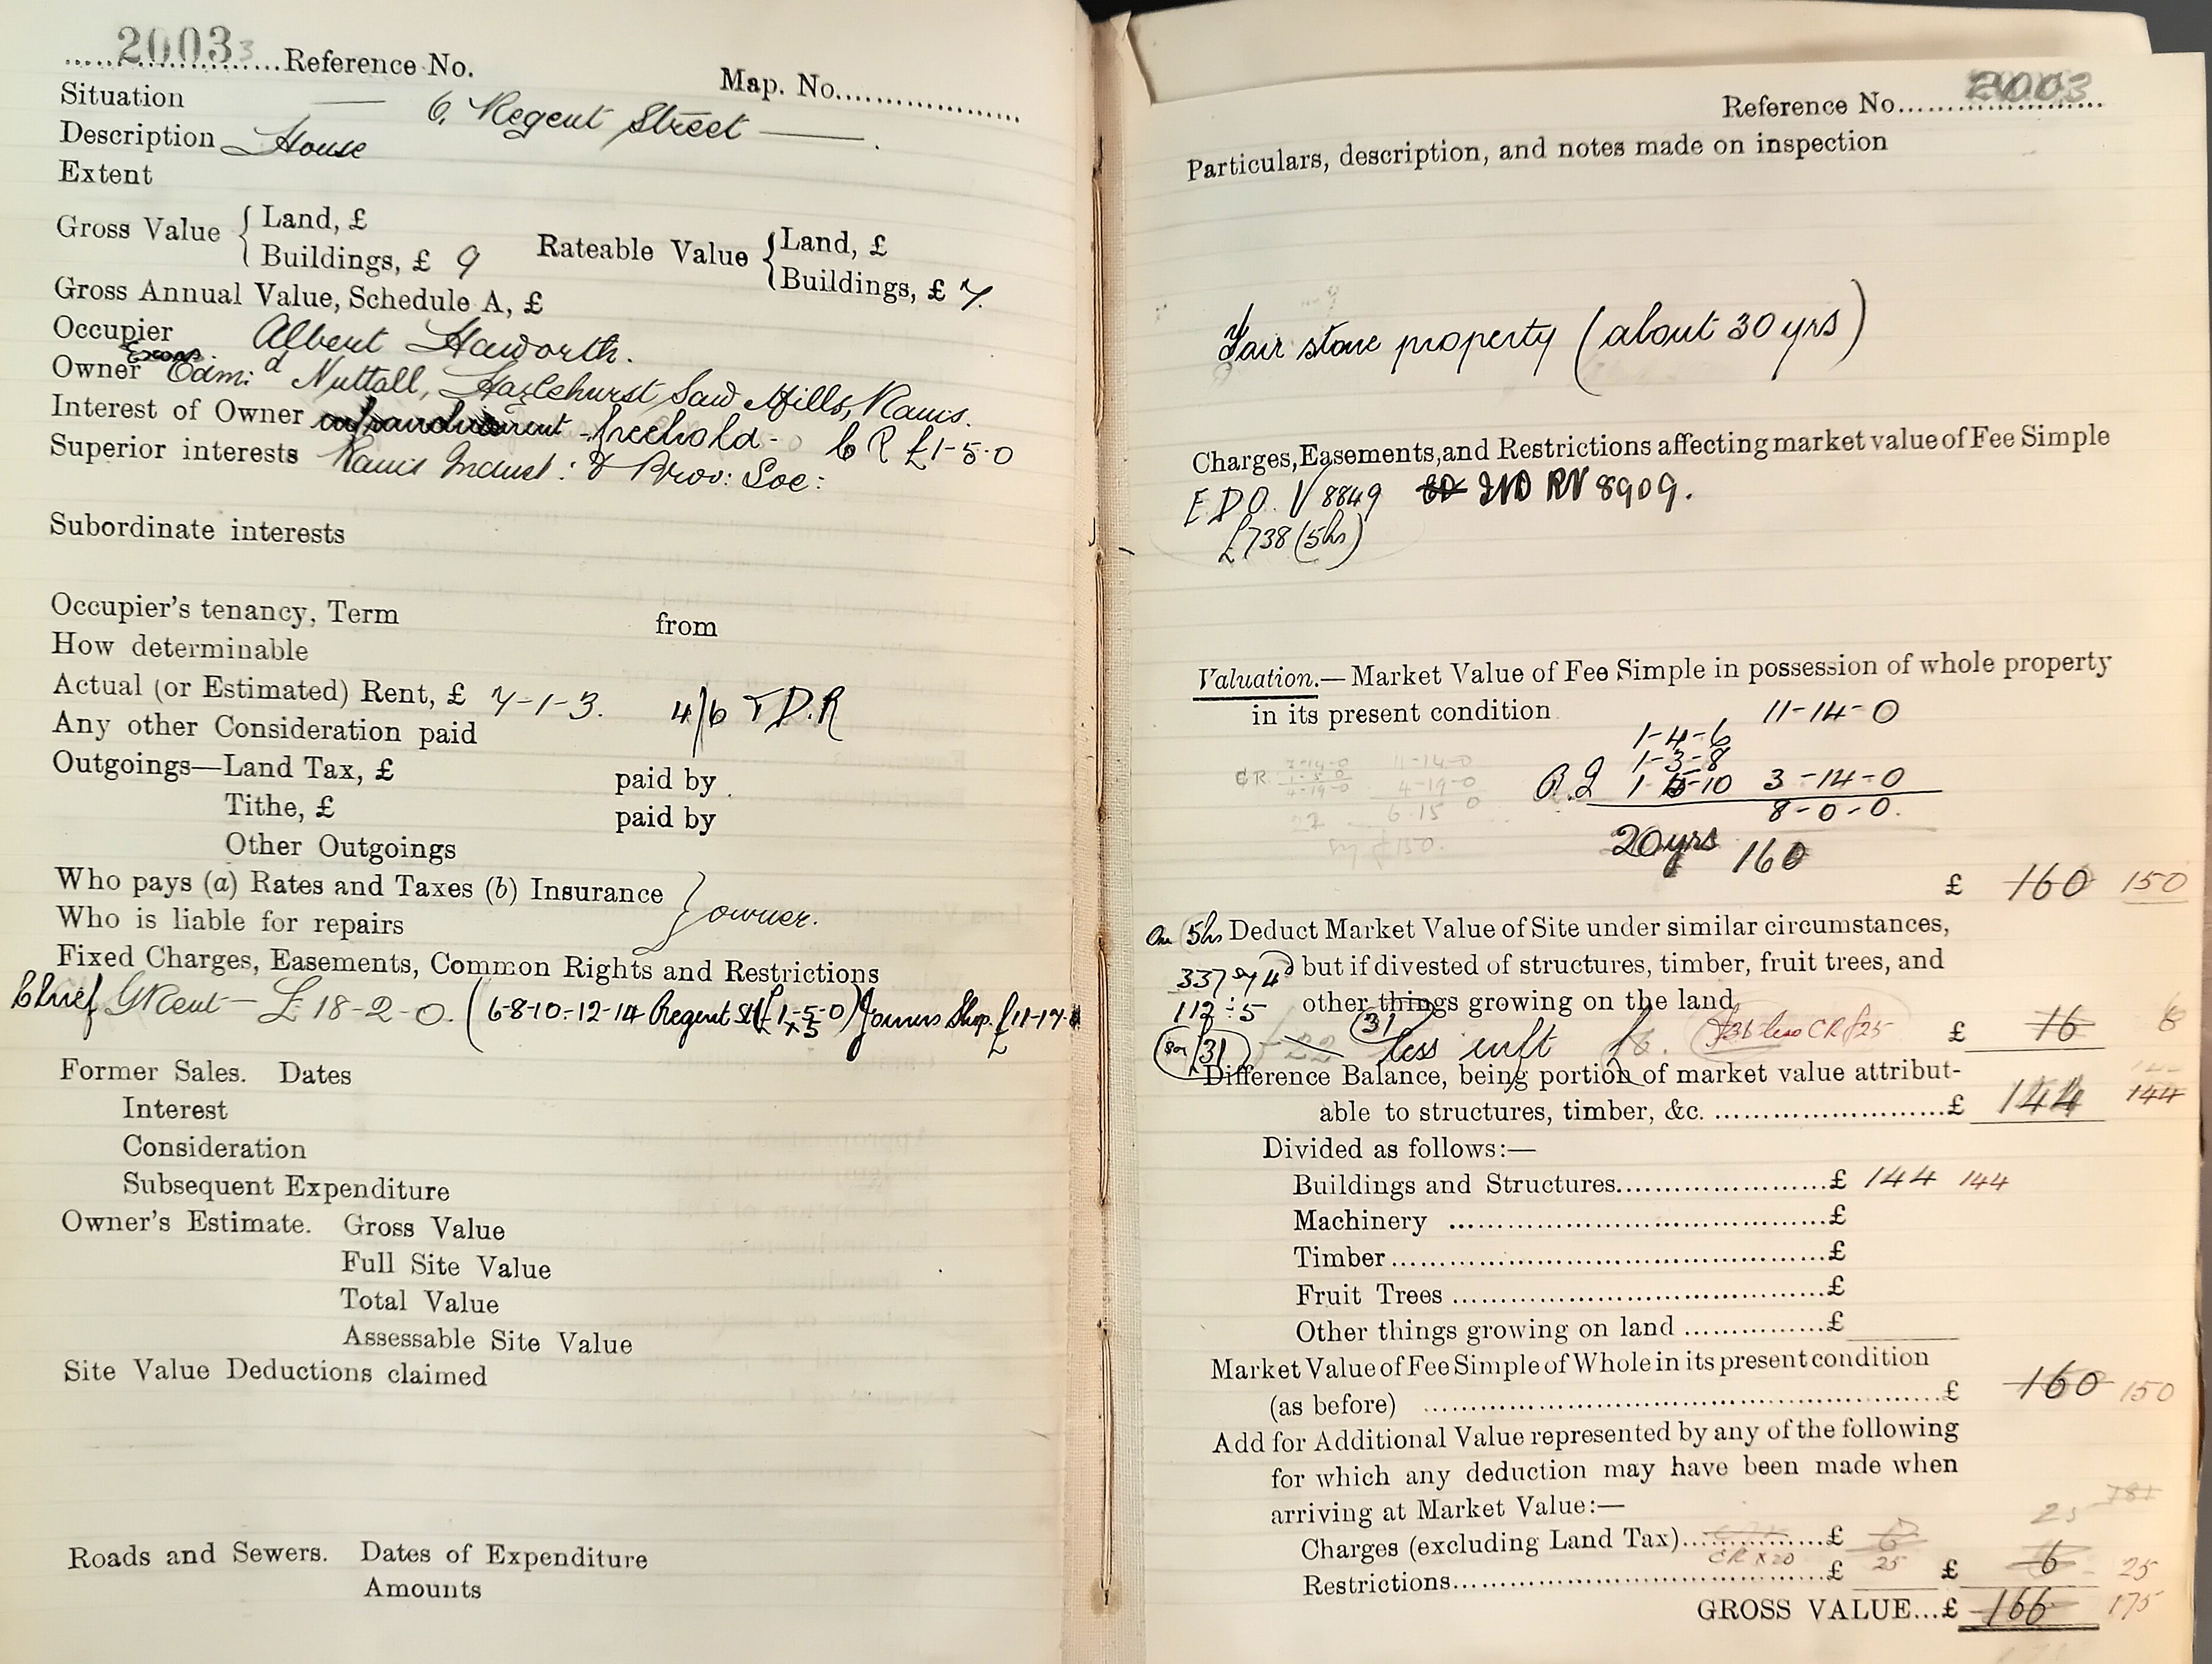 2003 Reference No.
Map. No.
Situation — 6, Regent Street —
Description House
Extent
Gross Value { Land, £
Buildings, £ 9
Rateable Value { Land, £
Buildings, £ 7.
Gross Annual Value, Schedule A, £
Occupier Albert Haworth.
Exors.
Owner Edmd Nuttall, Hazlehurst Saw Mills, Rams.
Interest of Owner freehold - C R £1-5-0
Superior interests Rams Indust: & Prov: Soc:
Subordinate interests
Occupier's tenancy, Term from
How determinable
Actual (or Estimated) Rent, £ 7-1-3. 4/6 T.D.R
Any other Consideration paid
Outgoings—Land Tax, £ paid by
Tithe, £ paid by
Other Outgoings
Who pays (a) Rates and Taxes (b) Insurance } owner.
Who is liable for repairs
Fixed Charges, Easements, Common Rights and Restrictions
Chief Rent — £18-2-0. (6-8-10-12-14 Regent St (£1-5-0 x 5) Joiners Shop £11-17-
Former Sales. Dates
Interest
Consideration
Subsequent Expenditure
Owner's Estimate. Gross Value
Full Site Value
Total Value
Assessable Site Value
Site Value Deductions claimed
Roads and Sewers. Dates of Expenditure
Amounts
Reference No. 2003
Particulars, description, and notes made on inspection
Fair stone property (about 30 yrs)
Charges, Easements, and Restrictions affecting market value of Fee Simple
E D O. V 8849 IND RV 8909.
£738 (5hs)
Valuation.—Market Value of Fee Simple in possession of whole property
in its present condition 11-14-0
1-4-6
1-3-8
1-5-10 3-14-0
8-0-0.
CR. 11-14-0
1-5-0
4-19-0 4-19-0
6.15 0
£150.
20 yrs 160
£ 160 150
5hs Deduct Market Value of Site under similar circumstances,
337 @ 4d but if divested of structures, timber, fruit trees, and
112 ÷ 5 other things growing on the land
31 22 31 less £31 less CR £25 £ 16 6
Difference Balance, being portion of market value attribut-
able to structures, timber, &c. £ 144 144
Divided as follows:—
Buildings and Structures £ 144 144
Machinery £
Timber £
Fruit Trees £
Other things growing on land £
Market Value of Fee Simple of Whole in its present condition
(as before) £ 160 150
Add for Additional Value represented by any of the following
for which any deduction may have been made when
arriving at Market Value:—
25 181
Charges (excluding Land Tax) £ 6
CR x 20 25
Restrictions £ £ 6 25
GROSS VALUE...£ 166 175